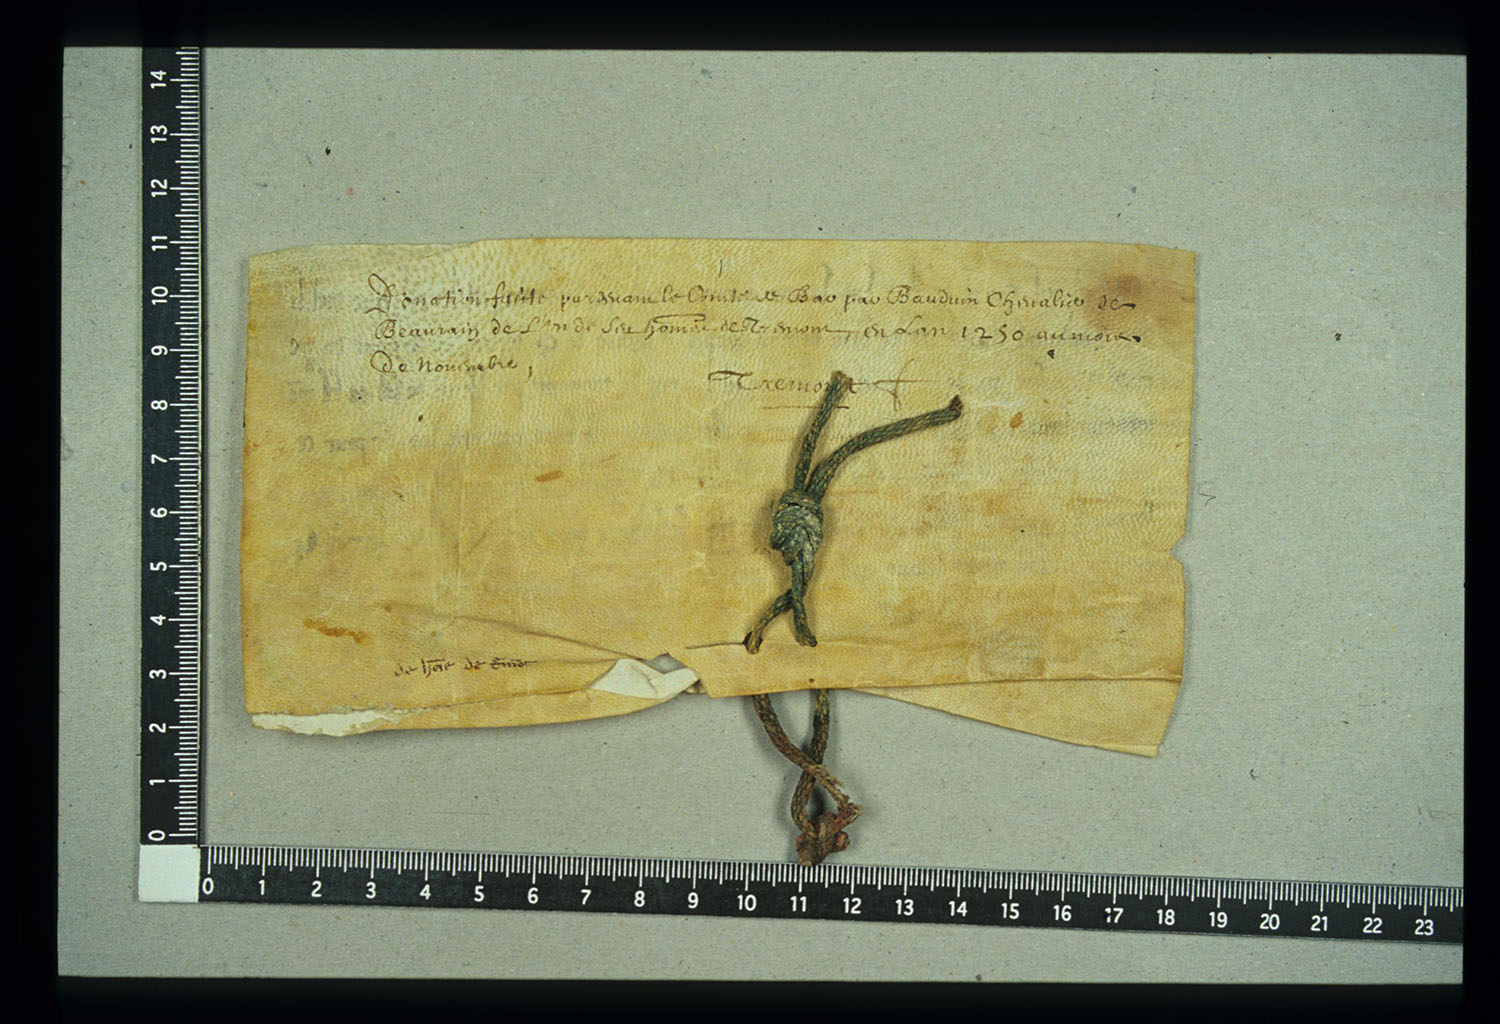 Donation faicte pardeuant le Comte de Bar par Bauduin Cheualier de
Beaurain de l'un de ses hommes de Tremont, en Lan 1250 au mois
de Nouembre,
Tremont
de hoīe de
14
13
12
11
10
9
8
7
6
5
4
3
2
1
0
0 1 2 3 4 5 6 7 8 9 10 11 12 13 14 15 16 17 18 19 20 21 22 23